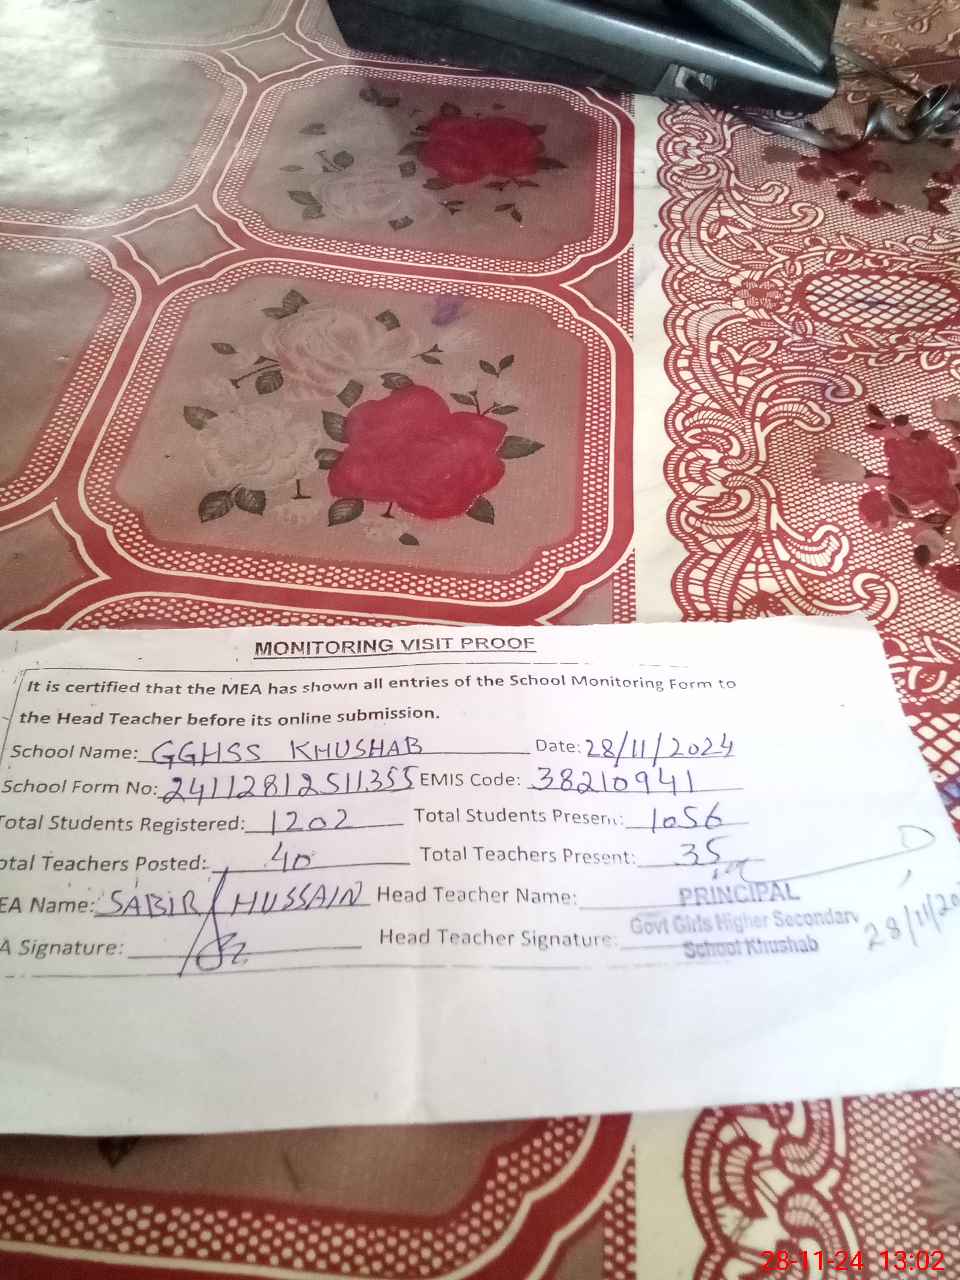 MONITORING VISIT PROOF
It is certified that the MEA has shown all entries of the School Monitoring Form to
the Head Teacher before its online submission.
School Name: GGHSS KHUSHAB Date: 28/11/2024
School Form No: 24112812511355 EMIS Code: 38210941
Total Students Registered: 1202 Total Students Present: 1056
otal Teachers Posted: 40 Total Teachers Present: 35
EA Name: SABIR HUSSAIN Head Teacher Name:
PRINCIPAL
A Signature: Head Teacher Signature:
Govt Girls Higher Secondary
School Khushab
28/11/20
28-11-24 13:02